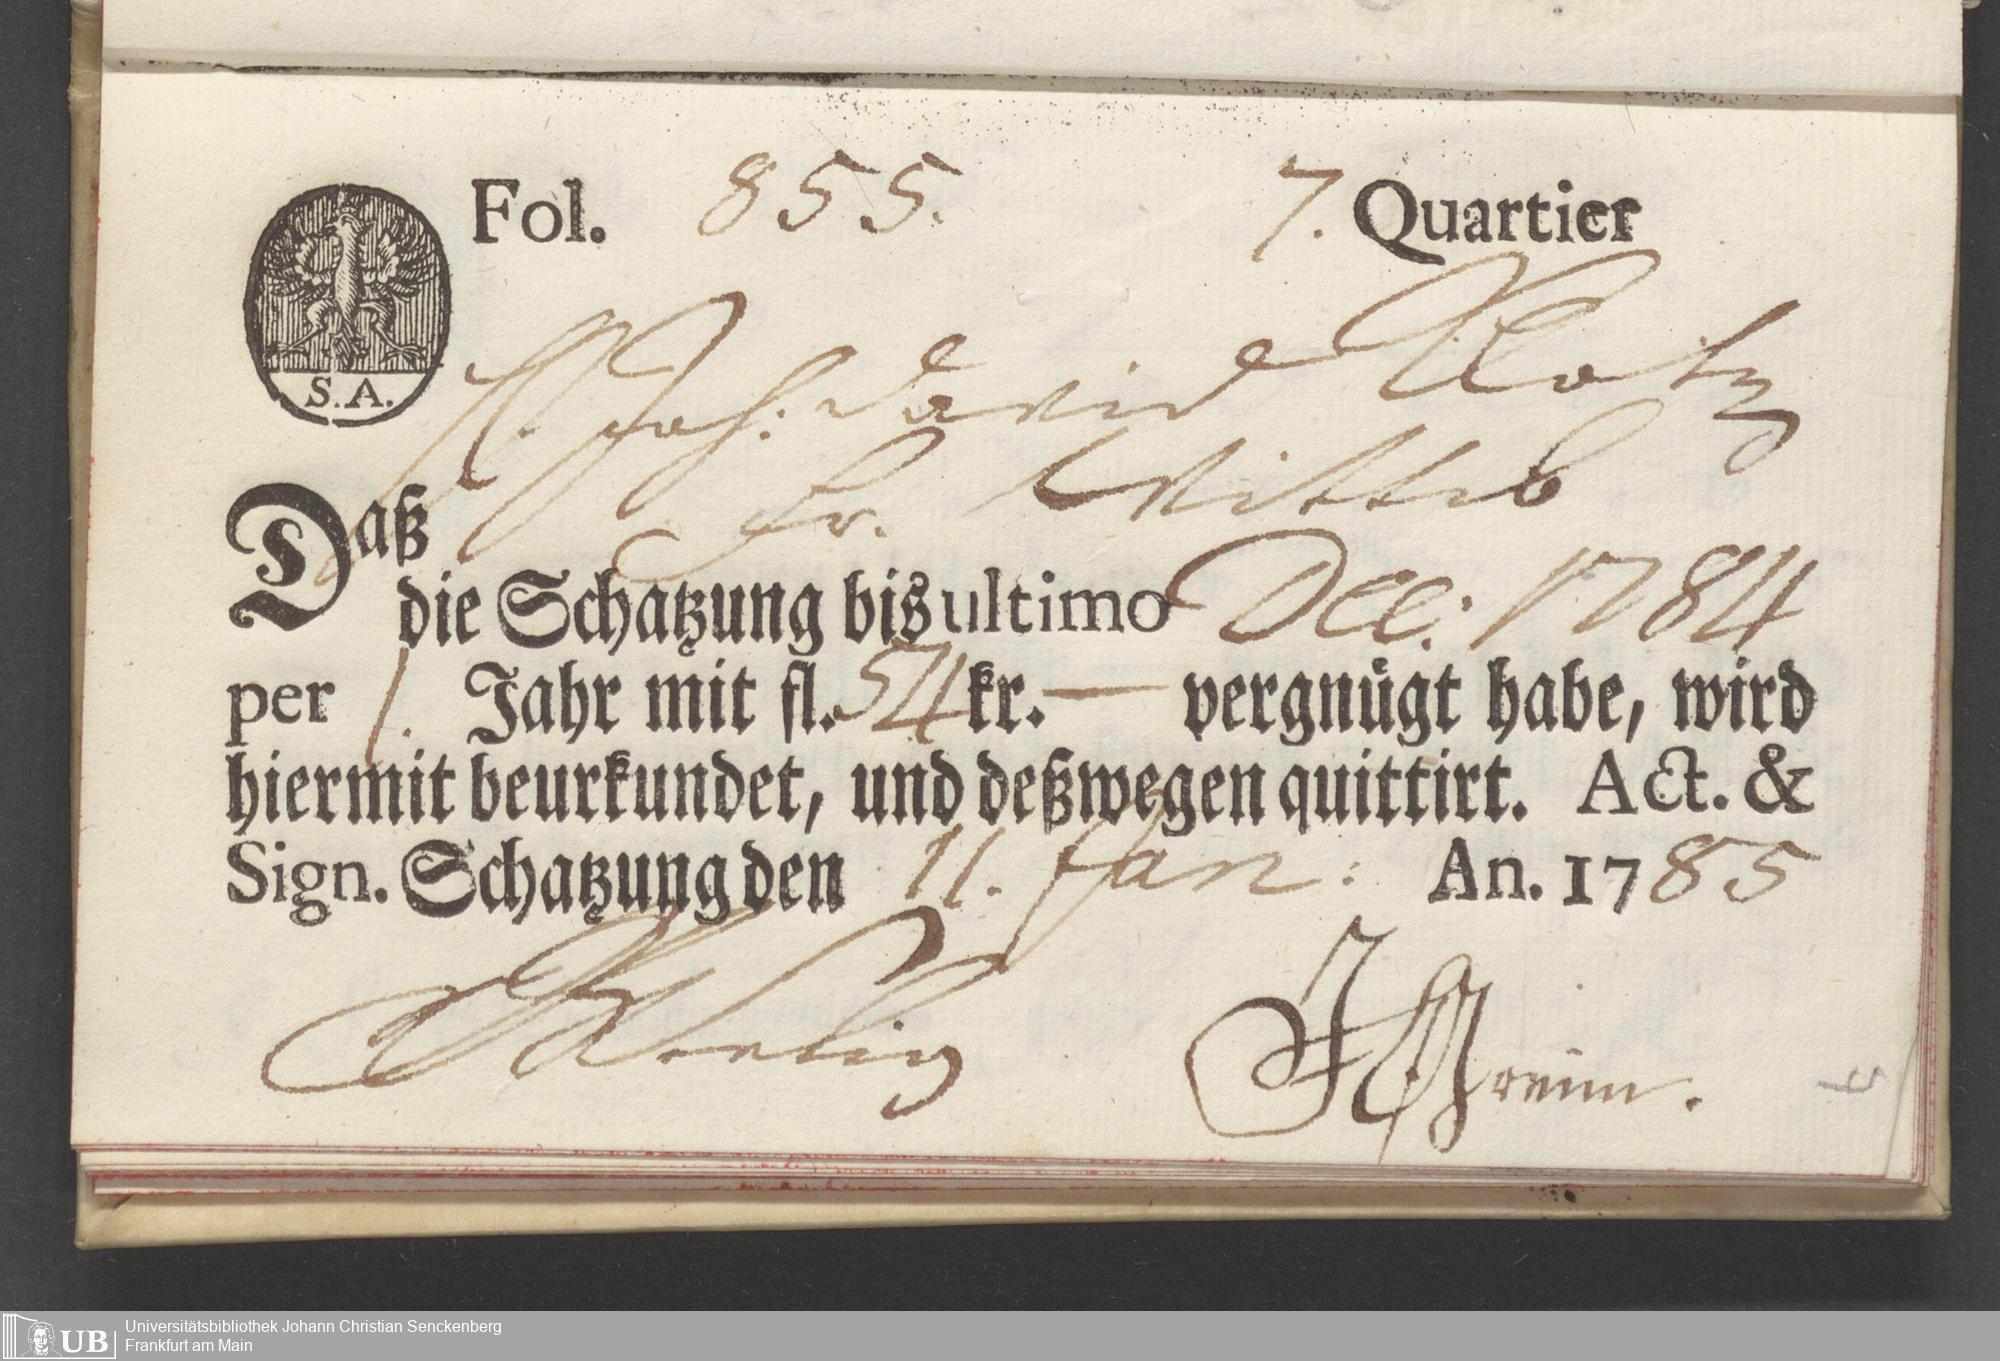 Fol. 855. 7. Quartier
S. A.
H. Joh: David Klotz
Fr. Wittib
Daß
die Schatzung bis ultimo Dec: 1784
per 1. Jahr mit fl. 54 kr. — vergnügt habe, wird
hiermit beurkundet, und deßwegen quittirt. Act. &
Sign. Schatzung den 11. Jan: An. 1785
UB
Universitätsbibliothek Johann Christian Senckenberg
Frankfurt am Main